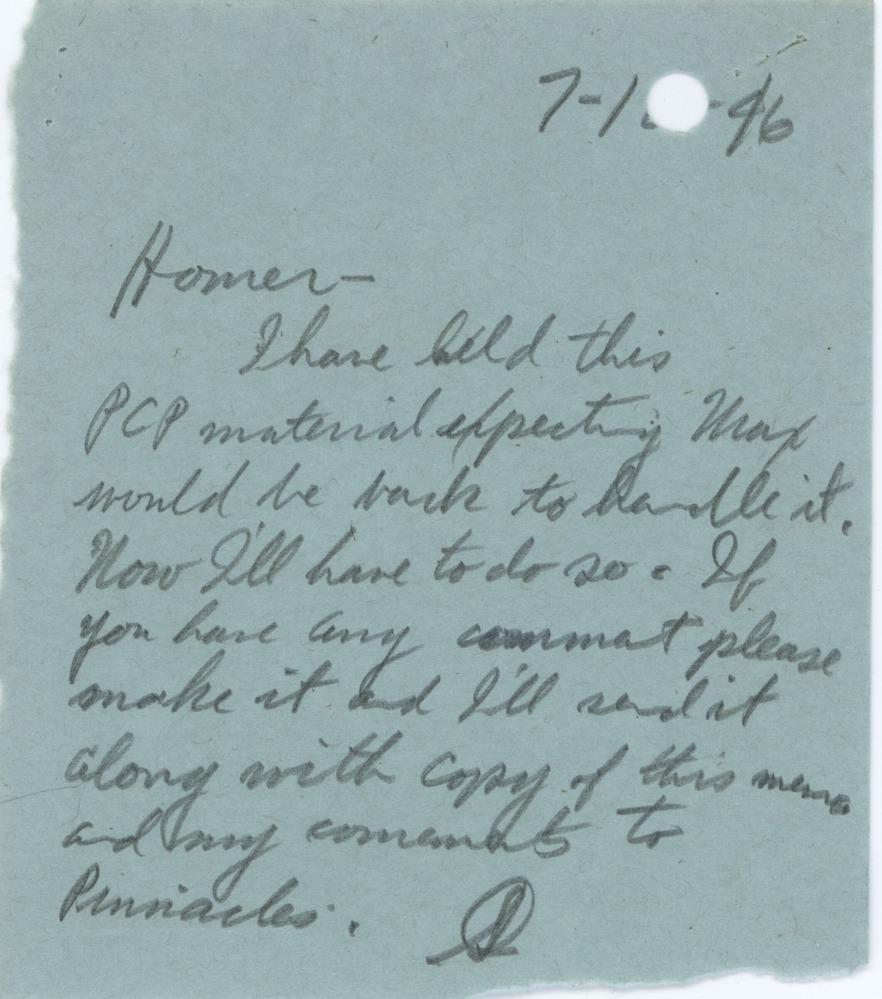 7-1 -46
Homer-
I have held this
PCP material expecting Max
would be back to handle it.
Now I'll have to do so. If
you have any comment please
make it and I'll send it
along with copy of this memo
and my comments to
Pinnacles.